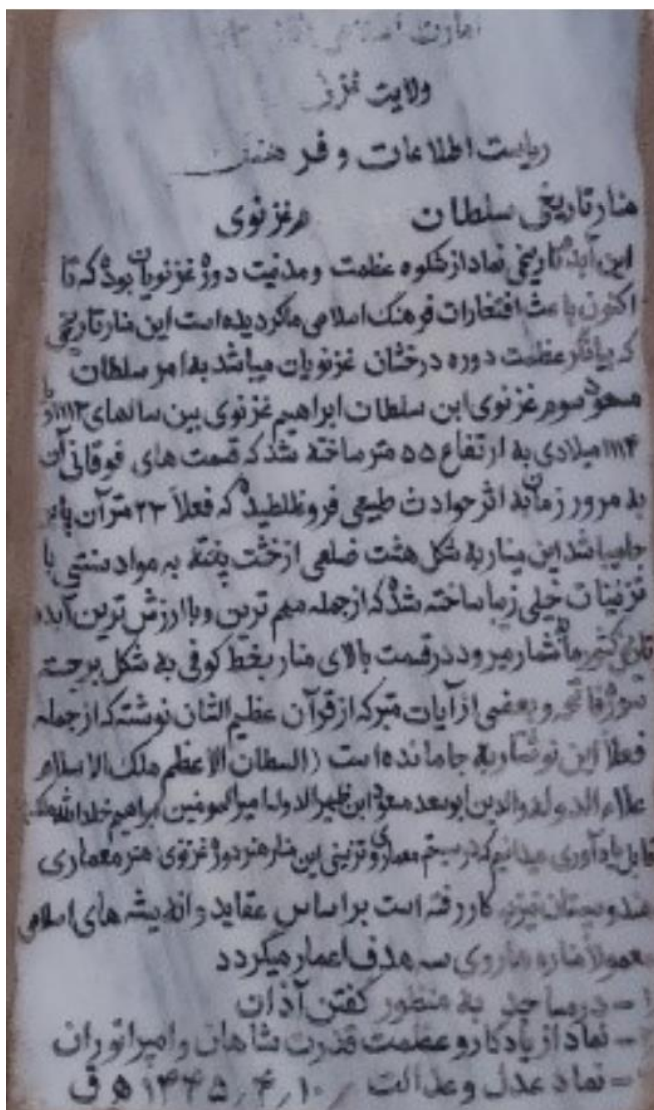 امارت اسلامی
ولایت غزنی
ریاست اطلاعات و فرهنگ
منار تاریخی سلطان م غزنوی
این آبده تاریخی نماد از شکوه عظمت و مدنیت دوره غزنویان بوده که تا
اکنون باعث افتخارات فرهنگ اسلامی ما گردیده است این منار تاریخی
که بیانگر عظمت دوره درخشان غزنویان میباشد به امر سلطان
مسعود سوم غزنوی ابن سلطان ابراهیم غزنوی بین سالهای ۱۱۱۳ و یا
۱۱۱۴ میلادی به ارتفاع ۵۵ متر ساخته شد که قسمت های فوقانی آن
به مرور زمان به اثر حوادث طبیعی فرو غلطیده که فعلاً ۲۳ متر آن پا بر
جا میباشد این مینار به شکل هشت ضلعی از خشت پخته به مواد سنتی با
تزئینات خیلی زیبا ساخته شده که از جمله مهم ترین و با ارزش ترین آبده
تاریخی کشور ما بشمار میرود در قسمت بالای منار بخط کوفی به شکل برجسته
سوره فاتحه و بعضی از آیات متبرکه از قرآن عظیم الشان نوشته که از جمله
فعلاً این نوشتار به جا مانده است (السطان الاعظم ملک الاسلام
علاء الدوله والدین ابو سعد مسعود ابن ظهیر الدوله امیر المومنین ابراهیم خلد الله ملکه
قابل یادآوری میدانیم که در سبتم معماری و تزئینی این منار هنر دوره غزنوی هنر معماری
هندوستان نیز به کار رفته است بر اساس عقاید و اندیشه های اسلامی
معمولاً مناره ها روی سه هدف اعمار میگردد
۱- در مساجد به منظور گفتن آذان
۲- نماد از یادگار و عظمت قدرت شاهان و امپراتوران
۳- نماد عدل و عدالت ۱۰/۴/۱۴۴۵ ه ق